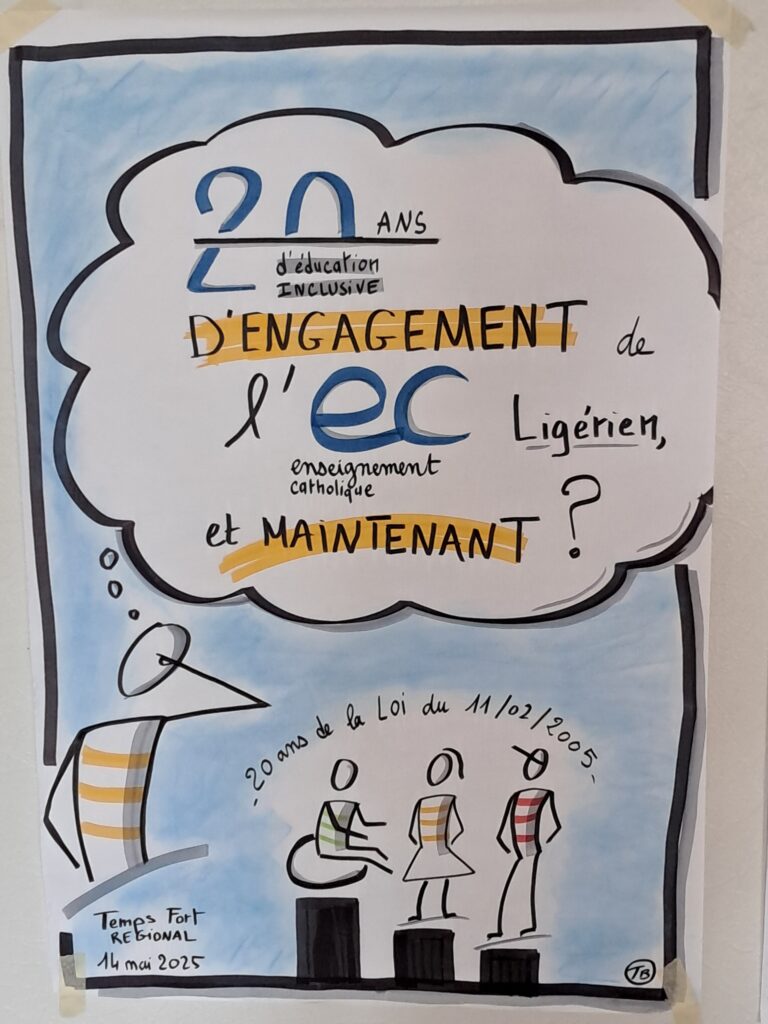 20 ANS
d'éducation
INCLUSIVE
D'ENGAGEMENT de
l'ec Ligérien,
enseignement
catholique
et MAINTENANT ?
-20 ans de la Loi du 11/02/2005-
Temps Fort
REGIONAL
14 mai 2025
TB